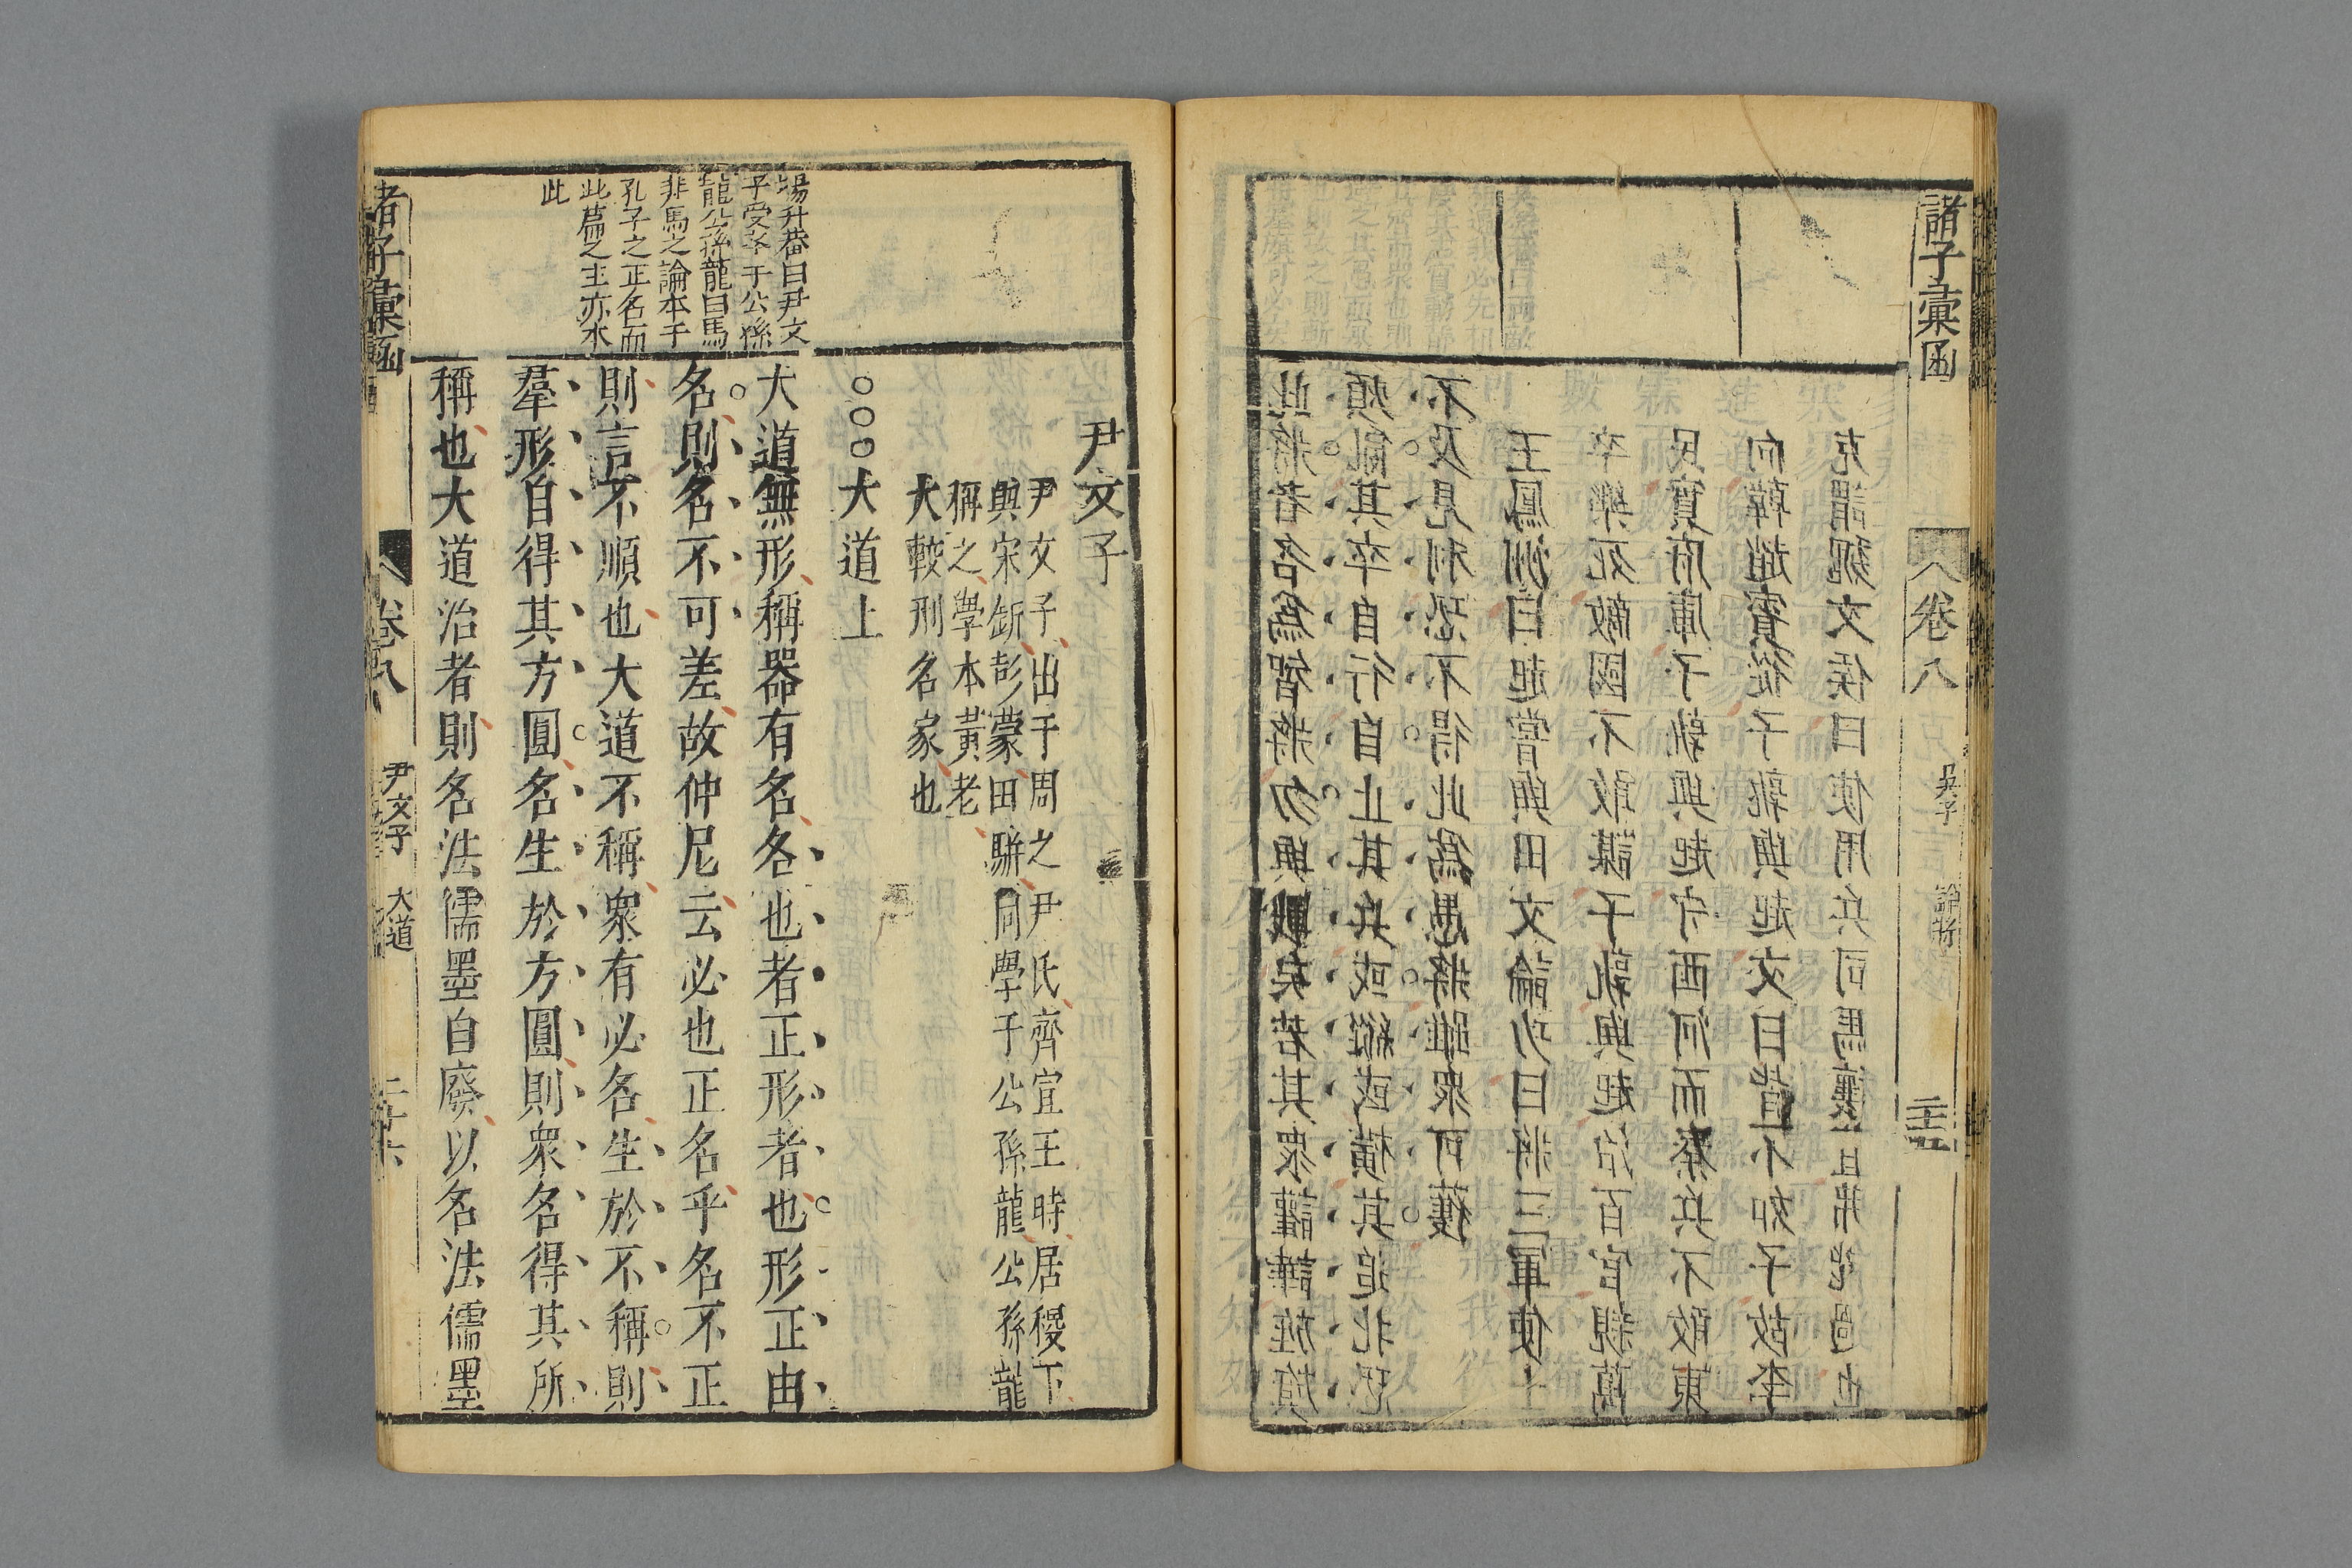 此將者名為智將勿與戰矣若其眾讙譁旌旗
煩亂其卒自行自止其兵或縱或橫其追北恐
不及見利恐不得此為愚將雖眾可獲
王鳳洲曰起嘗與田文論功曰將三軍使士
卒樂死敵國不敢謀子孰與起治百官親萬
民實府庫子孰與起守西河而秦兵不敢東
向韓趙賓從子孰與起文曰皆不如子故李
克謂魏文侯曰使用兵司馬穰苴弗能過也
諸子彙函 卷八 吳子 論將 二十五
尹文子
尹文子出于周之尹氏齊宣王時居稷下
與宋鈃彭蒙田駢同學于公孫龍公孫龍
稱之學本黃老
大較刑名家也
楊升菴曰尹文
子受學于公孫
龍公孫龍白馬
非馬之論本于
孔子之正名而
此篇之主亦本
此
○○○大道上
大道無形稱器有名名也者正形者也形正由
名則名不可差故仲尼云必也正名乎名不正
則言不順也大道不稱衆有必名生於不稱則
羣形自得其方圓名生於方圓則衆名得其所
稱也大道治者則名法儒墨自廢以名法儒墨
諸子彙函 卷八 尹文子 大道 二十六